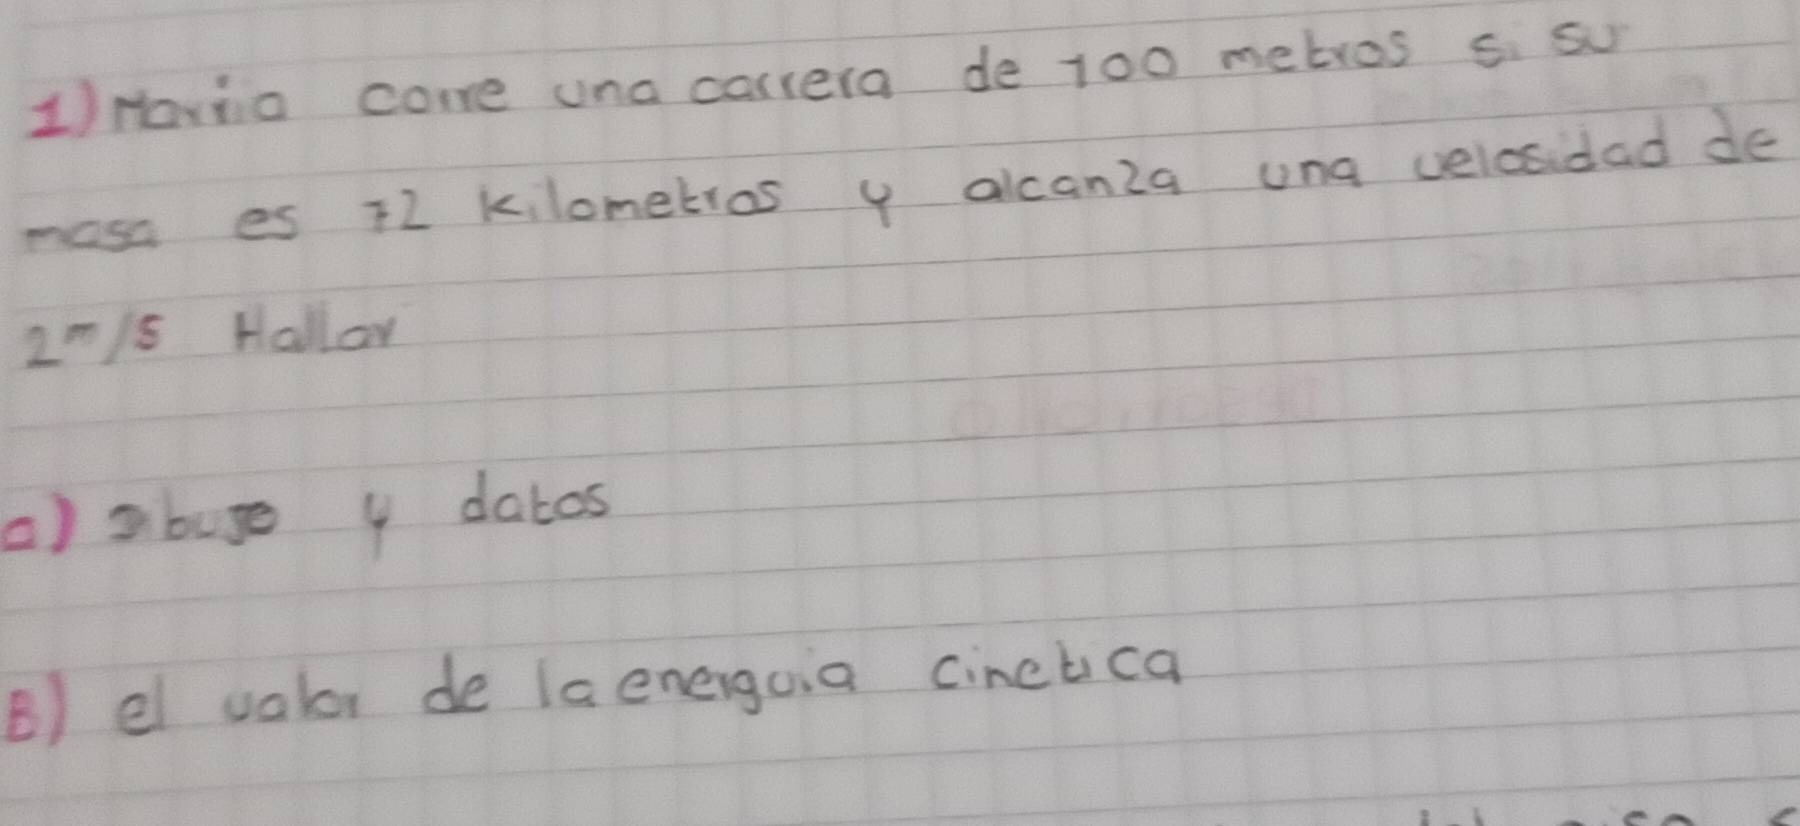 1) Maria corre una carrera de 100 metros si su
masa es 72 kilometros y alcanza una velosidad de
2 m/s Hallar
a) Dbujo y datos
B) el valor de la energuia cinetica